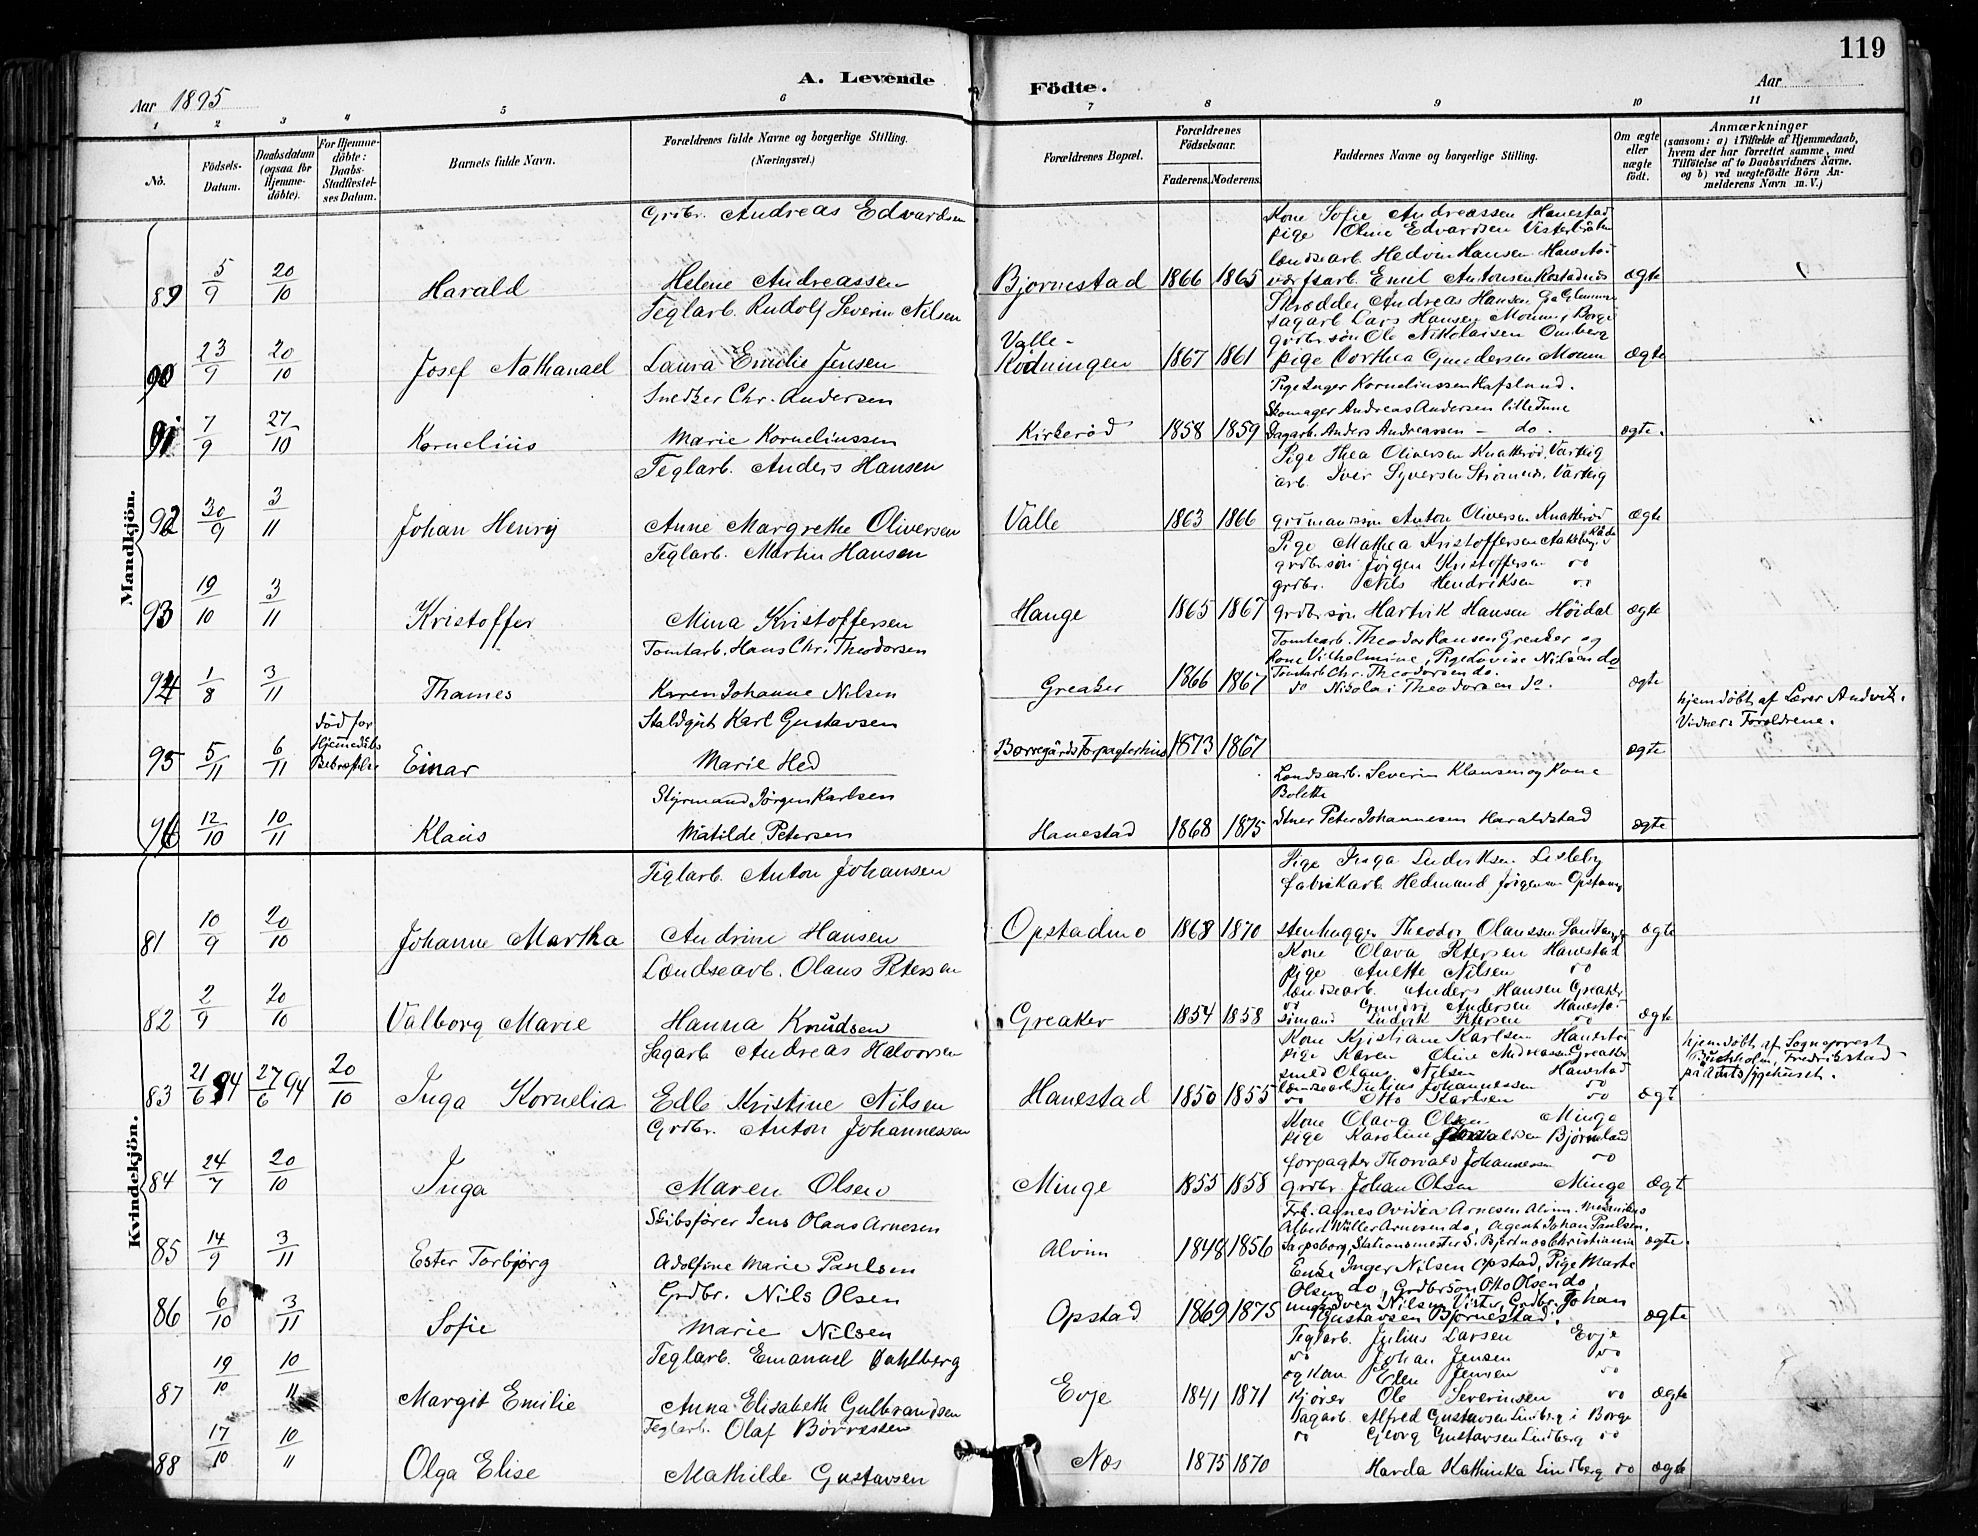 119
A. Levende Födte.
Aar 1895
Aar
1 2 3 4 5 6 7 8 9 10 11
No.
Födsels-Datum.
Daabsdatum (ogsaa for Hjemme-döbte).
For Hjemme-döbte: Daabs-Stadfæstel-ses Datum.
Barnets fulde Navn.
Forældrenes fulde Navne og borgerlige Stilling. (Næringsvei.)
Forældrenes Bopæl.
Forældrenes Födselsaar.
Faderens. Moderens.
Faddernes Navne og borgerlige Stilling.
Om ægte eller uægte födt.
Anmærkninger (saasom: a) i Tilfælde af Hjemmedaab, hvem der har forrettet samme, med Tilföielse af to Daabsvidners Navne, og b) ved uægtefödte Börn Anmelderens Navn m. V.)
Mandkjön.
Grdbr. Andreas Edvardsen
Kone Sofie Andreassen Hanestad
pige Oline Edvardsen
landsearb. Hedvin Hansen
89 5/9 20/10 Harald Helene Andreassen Bjørnestad 1866 1865 Emil Antonsen ægte
Teglarb. Rudolf Severin Nilsen
Skrædder Andreas Hansen
Sagarb Lars Hansen Moum, Borge
grdbr søn Ole Nikolaisen Omberg
90 23/9 20/10 Josef Nathanael Laura Emilie Jensen Valle-Rödningen 1867 1861 pige Dorthea Gundersen Moum ægte
Snedker Chr. Andersen
Pige Inger Korneliussen Hafslund.
Skomager Andreas Andersen lille Tune
91 7/9 27/10 Kornelius Marie Korneliussen Kirkerød 1858 1859 Dagarb. Anders Andreassen - do. ægte.
Teglarb. Anders Hansen
Pige Thea Oliversen Knatterød, Varteig
arb. Iver Syversen Strømnes, Varteig
92 30/9 3/11 Johan Henry Anne Margrethe Oliversen Valle 1863 1866 Anton Oliversen Knatterød ægte
Teglarb. Martin Hansen
Pige Mathea Kristoffersen
grdbr søn Jørgen Kristoffersen do
grdbr. Nils Hendriksen do
93 19/10 3/11 Kristoffer Mina Kristoffersen Hauge 1865 1867 grdbr søn Hartvik Hansen Höidal ægte
Tomtarb. Hans Chr. Theodorsen
Tomtearb. Theodor Hansen Greaker og
kone Vilhelmine, Pige Lovise Nilsen do
Tomtarb Chr. Theodorsen do.
94 1/8 3/11 Thames Karen Johanne Nilsen Greaker 1866 1867 do Nikolai Theodorsen do. ægte
Staldgut Karl Gustavsen
hjemdøbt af Lærer Andvik.
Vidner: Forældrene.
95 5/11 6/11 død før Hjemedåbs Bekræftelse Einar Marie Hed Borregårds Forpagterhus 1873 1867 ægte
Styrmand Jørgen Karlsen
Landsearb. Severin Klausen og Kone
Bolette
96 12/10 10/11 Klaus Matilde Petersen Hanestad 1868 1875 Peter Johannesen Haraldstad ægte
Kvindekjön.
Teglarb. Anton Johansen
Pige Inga Ludviksen Lisleby
fabrikarb. Hedmand Jørgensen Opstad
81 10/9 20/10 Johanne Martha Andrine Hansen Opstadmo 1868 1870 stenhugger Theodor Olaussen ægte
Landsearb. Olaus Petersen
Kone Olava Petersen Hanestad
pige Anette Nilsen do
landsearb. Anders Hansen Greaker
do Andersen Hanestad
82 2/9 20/10 Valborg Marie Hanna Knudsen Greaker 1854 1858 sømand Ludvik Petersen do ægte
Sagarb Andreas Halvorsen
Kone Kristiane Karlsen Hanestad
pige Karen Oline Andreassen Greaker
smed Olaus Nilsen Hanestad
landsearb Julius Johannessen do
hjemdøbt af Sogneprest
Buchholm, Fredrikstad
på Amtssygehuset.
83 21/6 94 27/6 94 20/10 Inga Kornelia Edle Kristine Nilsen Hanestad 1850 1855 do Otto Karlsen do ægt
Grdbr. Anton Johannessen
Kone Olava Olsen Minge
pige Karoline Bjørnland
forpagter Thorvald Johannessen do
84 24/7 20/10 Inga Maren Olsen Minge 1855 1858 grdbr. Johan Olsen Minge ægt
Skibsfører Jens Olaus Arnesen
Frk. Agnes Ovidia Arnesen Alvim.
Albert Walter Arnesen do, Agent Johan Paulsen,
85 14/9 3/11 Ester Torbjørg Adolfine Marie Paulsen Alvim 1848 1856 Sarpsborg, Stationsmester S. Bjertnæs Christiania ægte.
Grdbr. Nils Olsen
Enke Inger Nilsen Opstad, Pige Marte
Olsen do, Grdbr søn Otto Olsen do,
86 6/10 3/11 Sofie Marie Nilsen Opstad 1869 1875 Sven Nilsen Vister, Grdbr. Johan
Gustavsen Bjørnestad. ægte
Teglarb. Emanuel Dahlberg
Teglarb. Julius Larsen Evje
do Johan Jensen do
og kone Ellen Jensen do
87 19/10 10/11 Margit Emilie Anna Elisabeth Gulbrandsen Evje 1841 1871 Kjører Ole Severinsen do ægte
Teglarb. Olaf Börresen
Sagarb. Alfred Gustavsen Lindberg i Borge
do Georg Gustavsen Lindberg do
88 17/10 10/11 Olga Elise Mathilde Gustavsen Næs 1875 1870 Harda Kathinka Lindberg do ægte